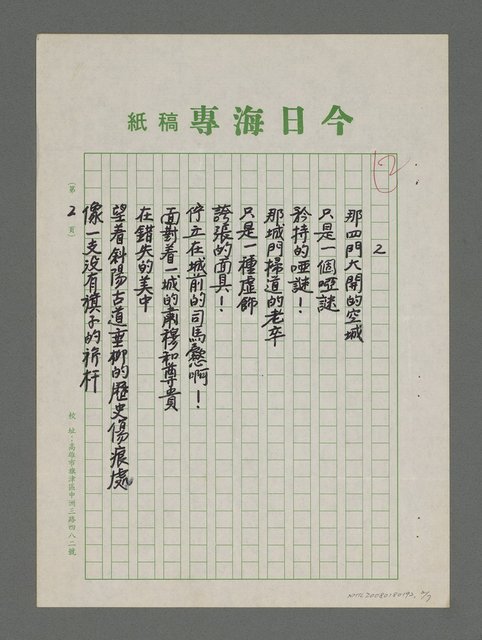 今日海專稿紙
2
2
那四門大開的空城
只是一個啞謎
矜持的啞謎！
那城門掃道的老卒
只是一種虛飾
誇張的面具！
佇立在城前的司馬懿啊！
面對着一城的肅穆和尊貴
在錯失的美中
望着斜陽古道垂柳的歷史傷痕處
像一支没有旗子的旂杆
（第2頁）
校址：高雄市旗津區中洲三路四八二號
NMTL20080180192, 2/7